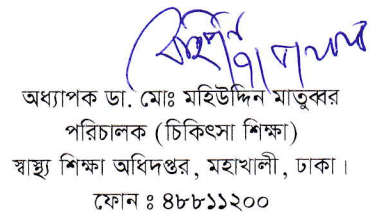 অধ্যাপক ডা. মোঃ মহিউদ্দিন মাতুব্বর
পরিচালক (চিকিৎসা শিক্ষা)
স্বাস্থ্য শিক্ষা অধিদপ্তর, মহাখালী, ঢাকা।
ফোন ঃ ৪৮৮১১২০০